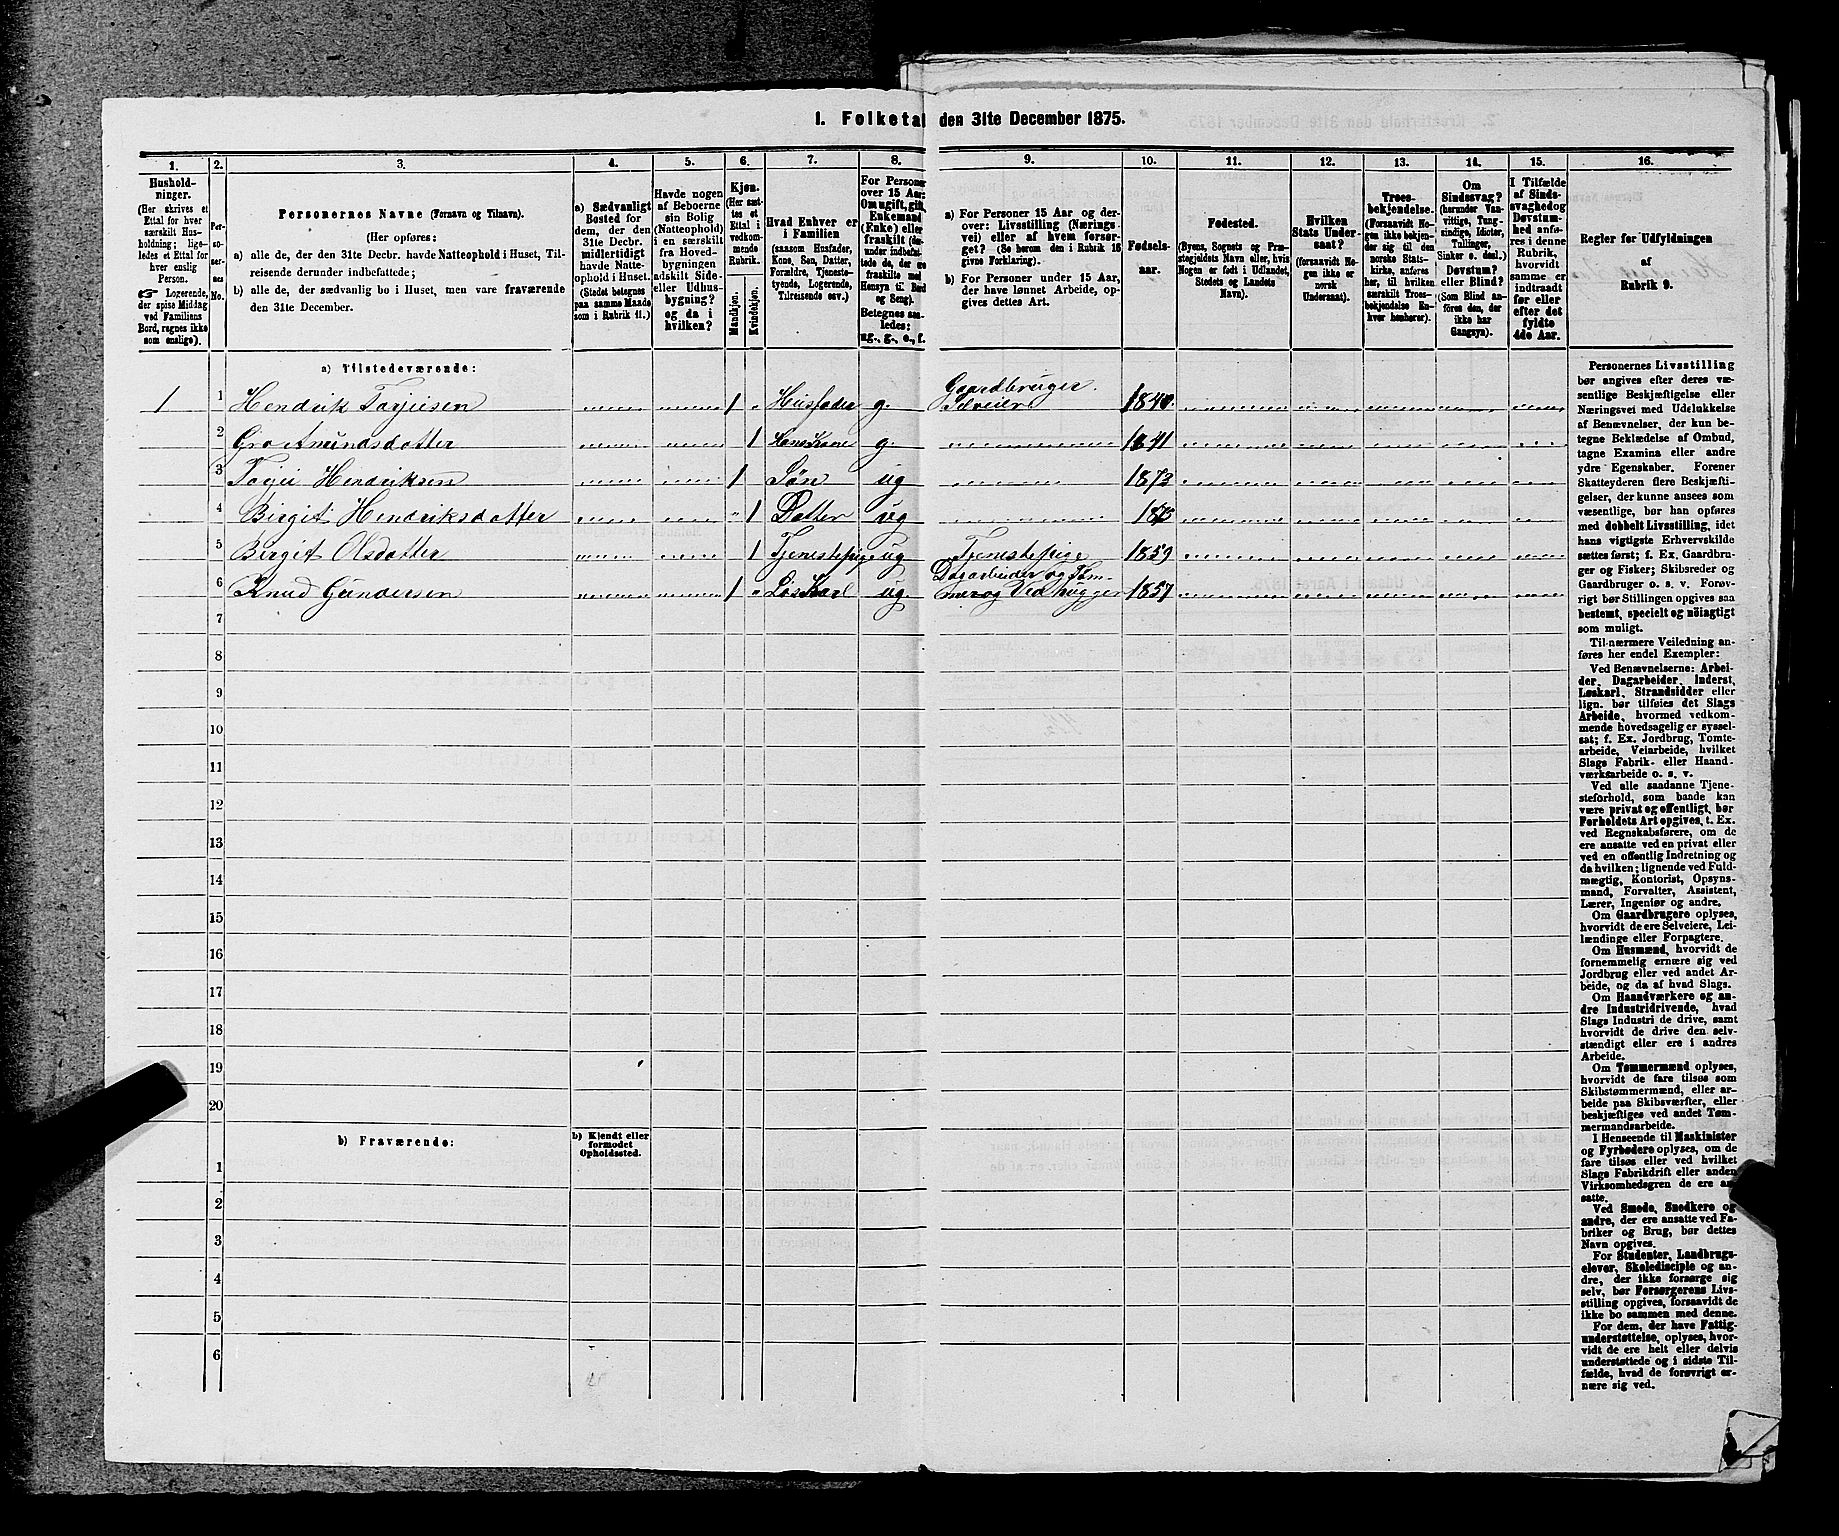 1. Folketal den 31te December 1875.
1.
2.
3.
4.
5.
6.
7.
8.
9.
10.
11.
12.
13.
14.
15.
16.
Hushold-
ninger.
(Her skrives et
Ettal for hver
særskilt Hus-
holdning; lige-
ledes et Ettal for
hver enslig
Person.
☞ Logerende,
der spise Middag
ved Familiens
Bord, regnes ikke
som enslige).
Per-
so-
ner-
nes
No.
Personernes Navne (Fornavn og Tilnavn).
(Her opføres:
a) alle de, der den 31te Decbr. havde Natteophold i Huset, Til-
reisende derunder indbefattede;
b) alle de, der sædvanlig bo i Huset, men vare fraværende
den 31te December.
a) Sædvanligt
Bosted for
dem, der den
31te Decbr.
midlertidigt
havde Natte-
ophold i Huset.
(Stedet betegnes
paa samme Maade
som i Rubrik 11.)
Havde nogen
af Beboerne
sin Bolig
(Natteophold)
i en særskilt
fra Hoved-
bygningen
adskilt Side-
eller Udhus-
bygning?
og da i
hvilken?
Kjøn.
(Her sæt-
tes et
Ettal i
vedkom-
mende
Rubrik.
Mandkjøn.
Kvindekjøn.
Hvad Enhver er
i Familien
(saasom Husfader,
Kone, Søn, Datter,
Forældre, Tjeneste-
tyende, Logerende,
Tilreisende osv.)
For Personer
over 15 Aar:
Om ugift, gift,
Enkemand
(Enke) eller
fraskilt (der-
under indbefat-
tede de, der ere
fraskilte med
Hensyn til Bord
og Seng).
Betegnes saa-
ledes:
ug., g., e., f.
a) For Personer 15 Aar og der-
over: Livsstilling (Nærings-
vei) eller af hvem forsør-
get? (Se herom den i Rubrik 16
givne Forklaring).
b) For Personer under 15 Aar,
der have lønnet Arbeide, op-
gives dettes Art.
Fødsels-
aar.
Fødested.
(Byens, Sognets og Præ-
stegjeldets Navn eller, hvis
Nogen er født i Udlandet,
Stedets og Landets
Navn).
Hvilken
Stats Under-
saat?
(forsaavidt No-
gen ikke er
norsk
Undersaat).
Troes-
bekjendelse.
(Forsaavidt No-
gen ikke bekjen-
der sig til den
norske Stats-
kirke, anføres
her, til hvilken
særskilt Troes-
bekjendelse En-
hver henhører).
Om
Sindssvag?
(herunder Van-
vittige, Tung-
sindige, Idioter,
Tullinger,
Sinker o. desl.)
Døvstum?
eller Blind?
(Som Blind an-
føres den, der
ikke har
Gangsyn).
I Tilfælde
af Sinds-
svaghed og
Døvstum-
hed anfø-
res i denne
Rubrik,
hvorvidt
samme er
indtraadt
før eller
efter det
fyldte
4de Aar.
Regler for Udfyldningen
af
Rubrik 9.
a) Tilstedeværende:
1 1 Hendrik Torjeisen 1 Husfader g. Gaardbruger. Selveier 1840.
2 Gro Amundsdatter 1 Hans Kone g. 1841
3 Torjei Hendriksen 1 Søn ug 1872
4 Birgit Hendriksdatter 1 Datter ug 1873
5 Birgit Olsdatter 1 Tjenestepige ug Tjenestepige 1859
6 Knud Gundersen 1 Løskarl ug Dagarbeider og Tøm-
mer og Vedhugger 1857
7
8
9
10
11
12
13
14
15
16
17
18
19
20
b) Fraværende:
b) Kjendt eller
formodet
Opholdssted.
1
2
3
4
5
6
Personernes Livsstilling
bør angives efter deres væ-
sentlige Beskjæftigelse eller
Næringsvei med Udelukkelse
af Benævnelser, der kun be-
tegne Beklædelse af Ombud,
tagne Examina eller andre
ydre Egenskaber. Forener
Skatteyderen flere Beskjæfti-
gelser, der kunne ansees som
væsentlige, bør han opføres
med dobbelt Livsstilling, idet
hans vigtigste Erhvervskilde
sættes først; f. Ex. Gaardbru-
ger og Fisker; Skibsreder og
Gaardbruger o. s. v. Forøv-
rigt bør Stillingen opgives saa
bestemt, specielt og nøiagtigt
som muligt.
Til nærmere Veiledning an-
føres her endel Exempler:
Ved Benævnelserne: Arbei-
der, Dagarbeider, Inderst,
Løskarl, Strandsidder eller
lign. bør tilføies det Slags
Arbeide, hvormed vedkom-
mende hovedsagelig er syssel-
sat; f. Ex. Jordbrug, Tomte-
arbeide, Veiarbeide, hvilket
Slags Fabrik- eller Haand-
værksarbeide o. s. v.
Ved alle saadanne Tjene-
steforhold, som baade kan
være privat og offentligt, bør
Forholdets Art opgives, t. Ex.
ved Regnskabsførere, om de
ere ansatte ved en privat eller
ved en offentlig Indretning og
da hvilken; lignende ved Fuld-
mægtig, Kontorist, Opsyns-
mand, Forvalter, Assistent,
Lærer, Ingeniør og andre.
Om Gaardbrugere oplyses,
hvorvidt de ere Selveiere, Lei-
lændinge eller Forpagtere.
Om Husmænd, hvorvidt de
fornemmelig ernære sig ved
Jordbrug eller ved andet Ar-
beide, og da af hvad Slags.
Om Haandværkere og an-
dre Industridrivende, hvad
Slags Industri de drive, samt
hvorvidt de drive den selv-
stændigt eller ere i andres
Arbeide.
Om Tømmermænd oplyses,
hvorvidt de fare tilsøs som
Skibstømmermænd, eller ar-
beide paa Skibsværfter, eller
beskjæftiges ved andet Tøm-
mermandsarbeide.
I Henseende til Maskinister
og Fyrbødere oplyses, om de
fare tilsøs eller ved hvilket
Slags Fabrikdrift eller anden
Virksomhedsgren de ere an-
satte.
Ved Smede, Snedkere og
andre, der ere ansatte ved Fa-
briker og Brug, bør dettes
Navn opgives.
For Studenter, Landbrugs-
elever, Skoledisciple og an-
dre, der ikke forsørge sig
selv, bør Forsørgerens Livs-
stilling opgives, forsaavidt de
ikke bo sammen med denne.
For dem, der have Fattig-
understøttelse, oplyses, hvor-
vidt de ere helt eller delvis
understøttede og i sidste Til-
fælde, hvad de forøvrigt er-
nære sig ved.